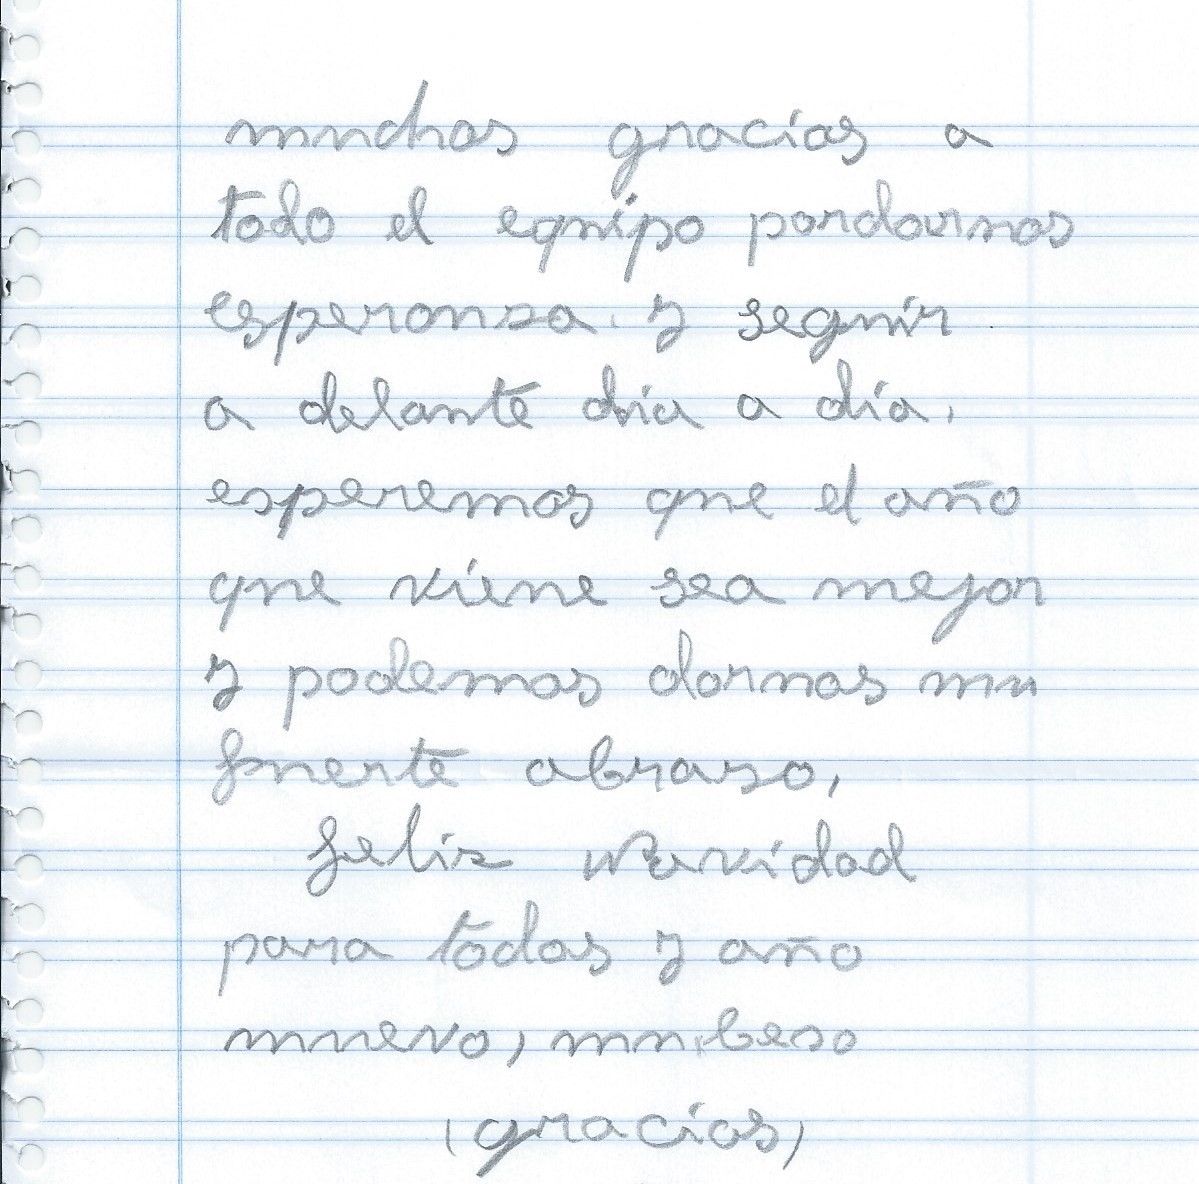 muchas gracias a
todo el equipo pordarnos
esperansa. y seguir
a delante dia a día.
esperemos que el año
que viene sea mejor
y podemos darnos un
fuerte abraso,
feliz Navidad
para todos y año
nuevo, un beso
(gracias)